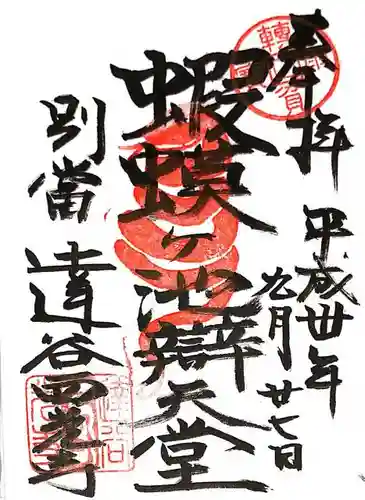 奉拝
平成丗年
九月廿七日
蝦蟆ヶ池辯天堂
別當
達谷西光寺